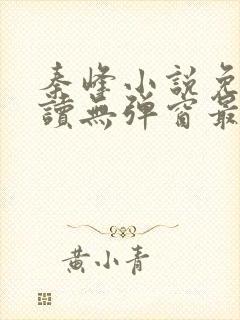 秦峰小說免
讀無彈窗最
黃小青